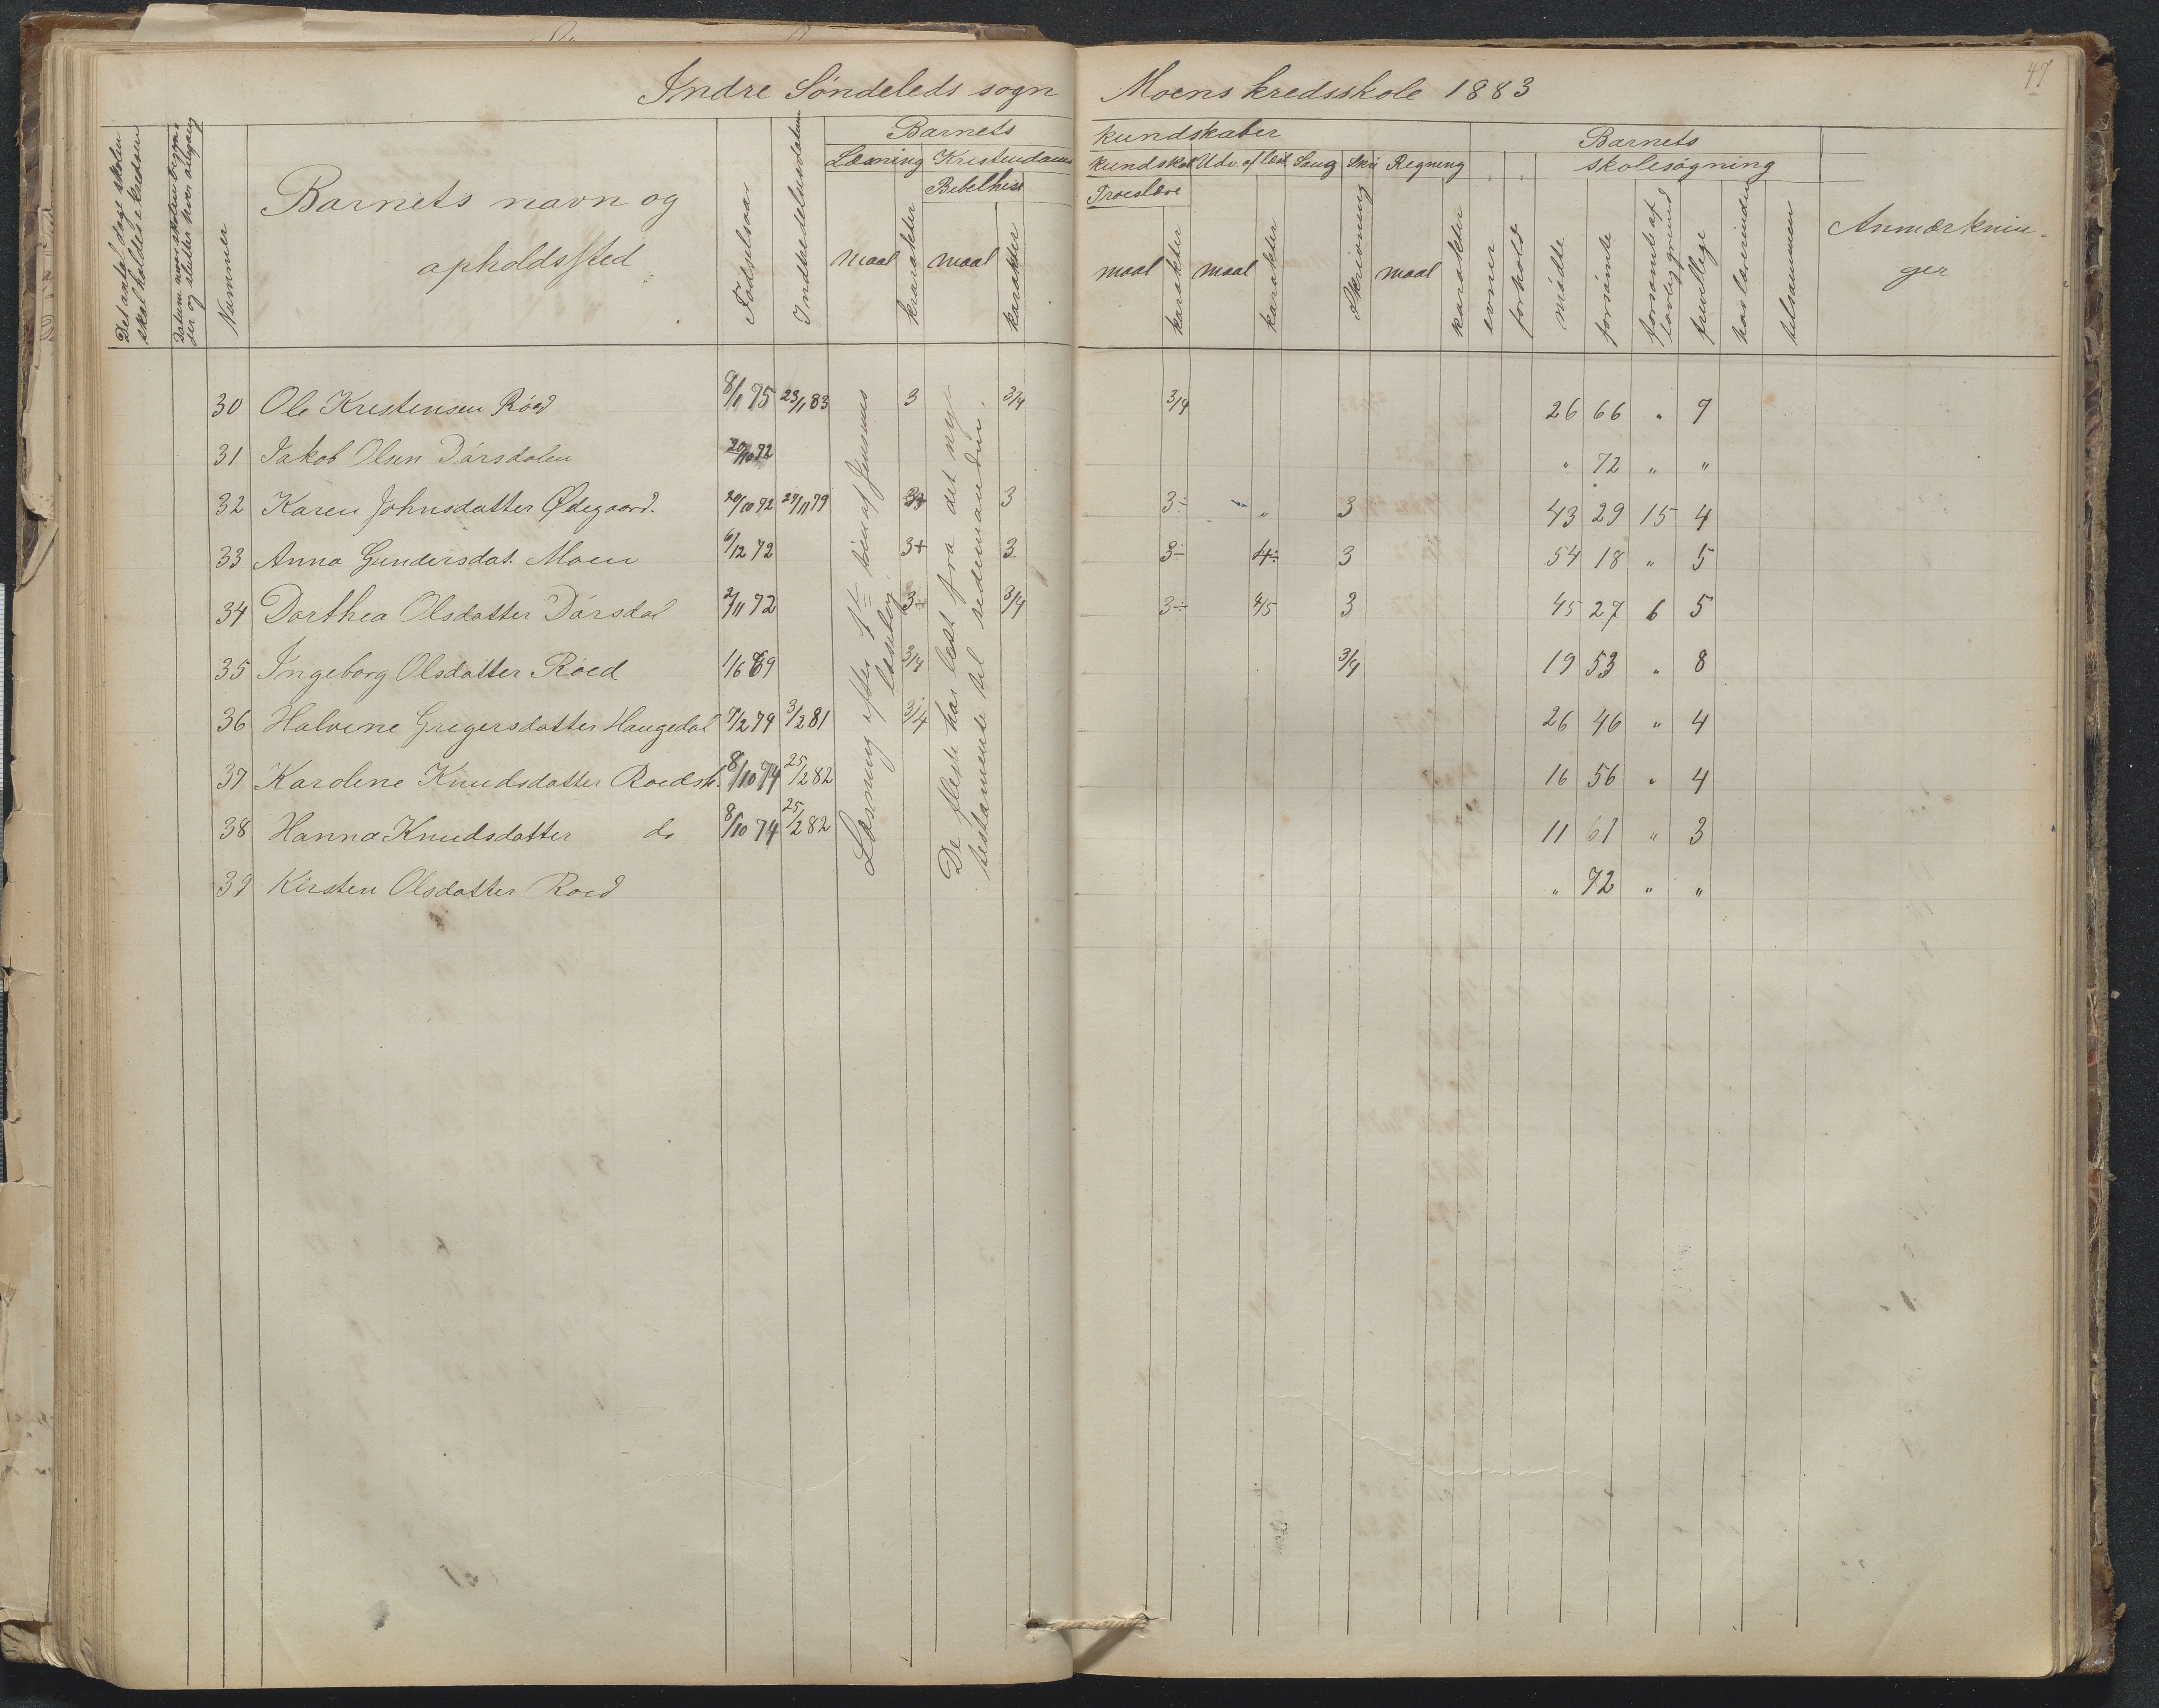 Indre Söndeleds sogn Moens kredsskole 1883
47
Det antal dage skolen skal holdes i kredsen
Datum naar skolen begynder og slutter hver afgang
Nummer
Barnets navn og opholdssted
Födselsaar
Indtrædelsesdatum
Barnets kundskaber
Læsning Kristendoms kundskab Udv. af læseb. Sang Skri Regning
Bibelhist Troeslære
maal karakter maal karakter maal karakter maal karakter Skrivning maal karakter evner forhold
Barnets skolesögning
mödte forsömte forsömte af lovlig grund frivillige hos lærerinden tilsammen
Anmærkninger
30 Ole Kristensen Röed 8/1 75 23/1 83 3 3/4 3/4 26 66 " 7
31 Jakob Olsen Dörsdalen 20/10 72 " 72 " "
32 Karen Johnsdatter Ødegaard. 20/10 72 27/11 79 3+ 3 3÷ " 3 43 29 15 4
33 Anna Gundersdat. Moen 6/12 72 3+ 3 3÷ 4÷ 3 54 18 " 5
34 Dorthea Olsdatter Dörsdal 2/11 72 3÷ 3/4 3÷ 4/5 3 45 27 6 5
35 Ingeborg Olsdatter Röed 1/6 69 3/4 3/4 19 53 " 8
36 Halvine Gregersdatter Haugedal 7/2 74 3/2 81 3/4 26 46 " 4
37 Karoline Knudsdatter Roedst. 8/10 74 25/2 82 16 56 " 4
38 Hanna Knudsdatter do 8/10 74 25/2 82 11 61 " 3
39 Kirsten Olsdatter Roed " 72 " "
Læsning efter af Jensens læsebog
De fleste har læst fra det nye testamente til